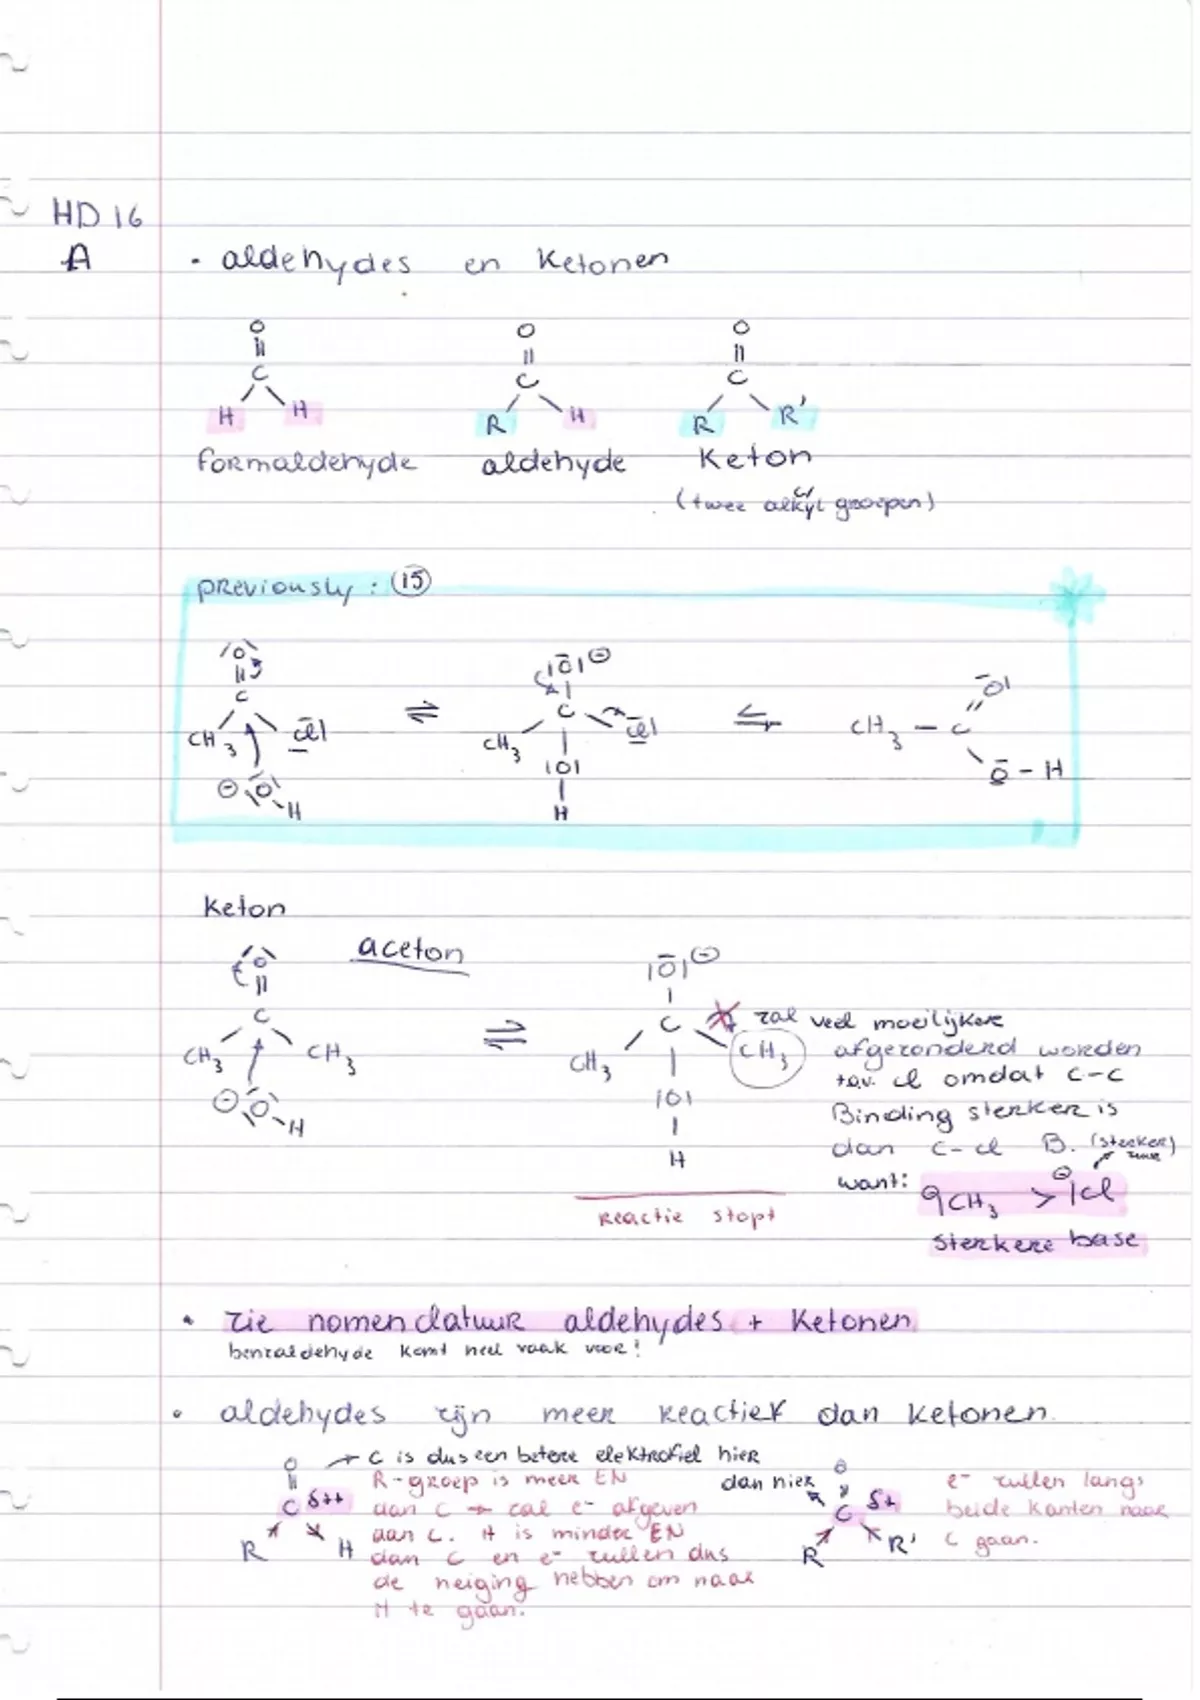 HD 16
A
• aldehydes en ketonen
O O O
|| || ||
C C C
H H R H R R'
formaldehyde aldehyde Keton
(twee alkyl groepen)
previously : (15)
|O| |O|⊖ O|
C ⇌ C ⇌ CH3 – C
CH3 Cl| CH3 Cl| O – H
⊖ |O – H |O|
H
keton
aceton
O |O|⊖
C ⇌ C
CH3 CH3 CH3 CH3
⊖ |O – H |O|
H
zal veel moeilijker
afgezonderd worden
t.o.v. Cl omdat C-C
Binding sterker is
dan C-Cl B. (sterker)
want: CH3 > |Cl ⊖
sterkere base
Reactie stopt
• zie nomenclatuur aldehydes + Ketonen
benzaldehyde komt heel vaak voor!
• aldehydes zijn meer reactief dan ketonen.
→ C is dus een betere elektrofiel hier
dan hier
O
C δ++
R H
R-groep is meer EN
dan C → zal e- afgeven
aan C. H is minder EN
dan C en e- zullen dus
de neiging hebben om naar
H te gaan.
O
C δ+
R R'
e- zullen langs
beide kanten naar
C gaan.